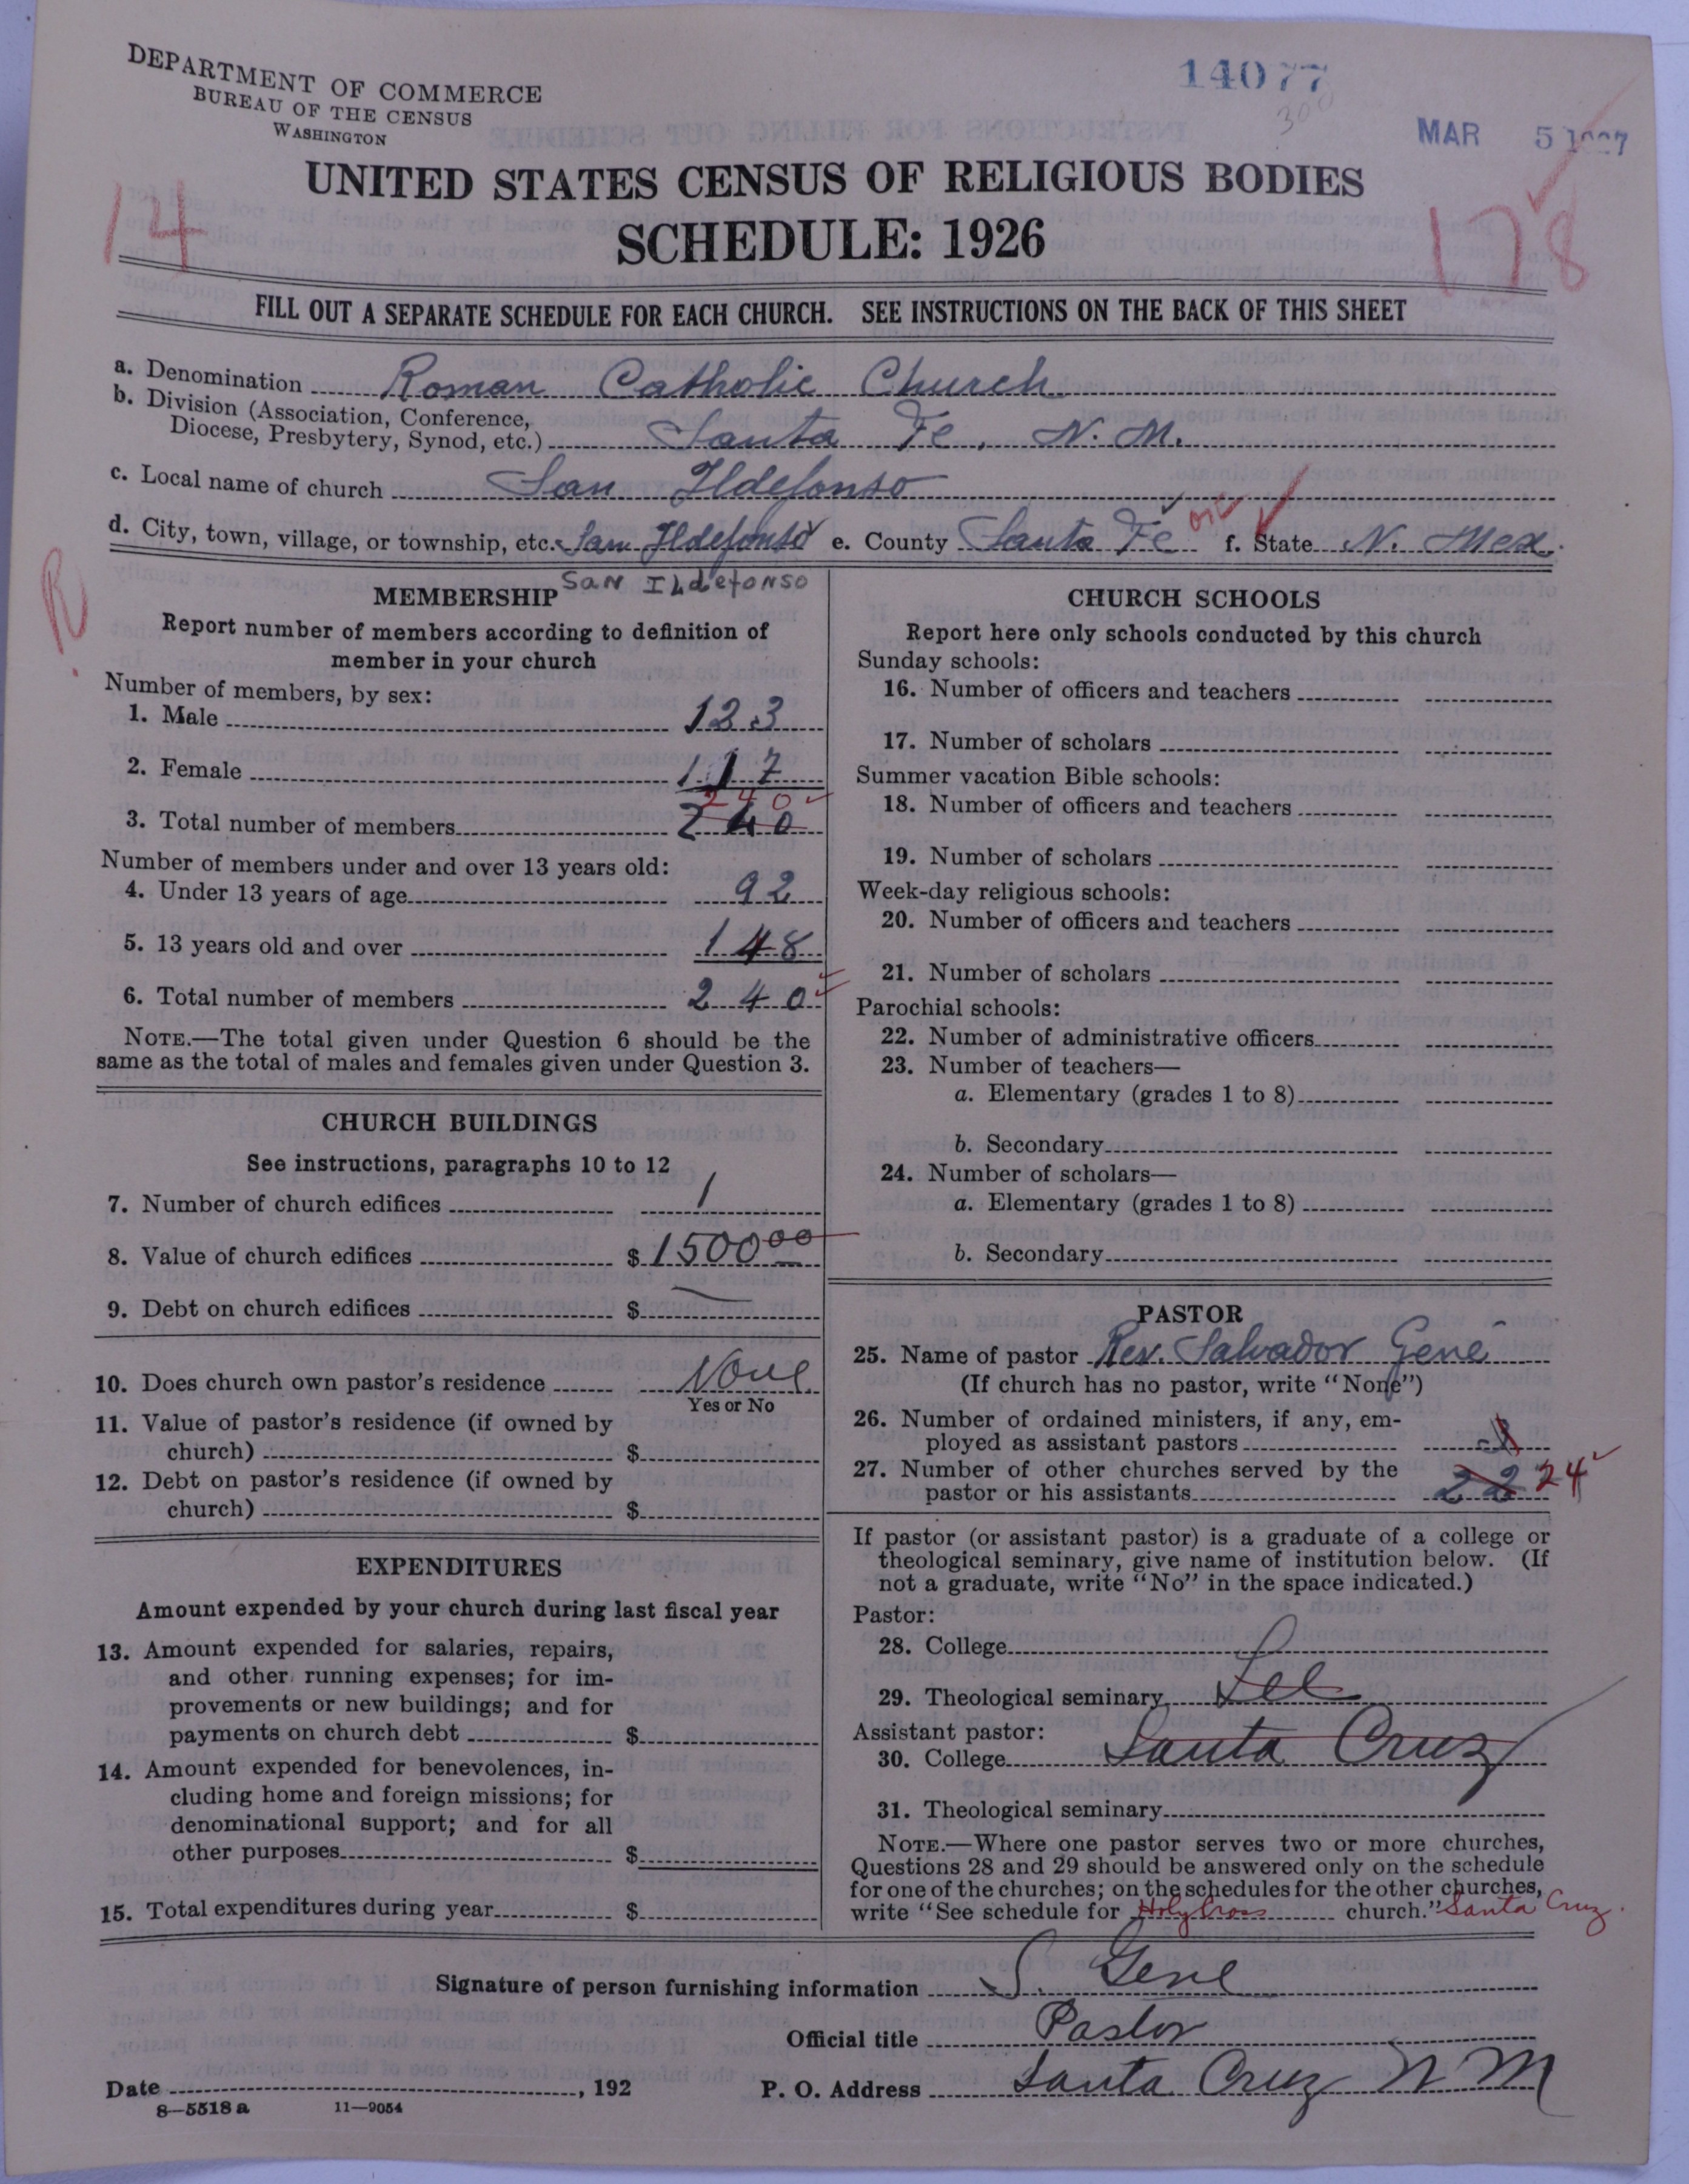 DEPARTMENT OF COMMERCE
BUREAU OF THE CENSUS
WASHINGTON
14077
300
MAR 5 1927
UNITED STATES CENSUS OF RELIGIOUS BODIES
SCHEDULE: 1926
14
178
FILL OUT A SEPARATE SCHEDULE FOR EACH CHURCH. SEE INSTRUCTIONS ON THE BACK OF THIS SHEET
a. Denomination Roman Catholic Church
b. Division (Association, Conference,
Diocese, Presbytery, Synod, etc.) Santa Fe, N. M.
c. Local name of church San Ildefonso
d. City, town, village, or township, etc. San Ildefonso e. County Santa Fe f. State N. Mex.
San Ildefonso
R
MEMBERSHIP
Report number of members according to definition of
member in your church
Number of members, by sex:
1. Male 123
2. Female 117
240
3. Total number of members 240
Number of members under and over 13 years old:
4. Under 13 years of age 92
5. 13 years old and over 148
6. Total number of members 240
NOTE.—The total given under Question 6 should be the
same as the total of males and females given under Question 3.
CHURCH BUILDINGS
See instructions, paragraphs 10 to 12
7. Number of church edifices 1
8. Value of church edifices $ 1500 00
9. Debt on church edifices $ —
10. Does church own pastor's residence None
Yes or No
11. Value of pastor's residence (if owned by
church) $
12. Debt on pastor's residence (if owned by
church) $
EXPENDITURES
Amount expended by your church during last fiscal year
13. Amount expended for salaries, repairs,
and other running expenses; for im-
provements or new buildings; and for
payments on church debt $
14. Amount expended for benevolences, in-
cluding home and foreign missions; for
denominational support; and for all
other purposes $
15. Total expenditures during year $
CHURCH SCHOOLS
Report here only schools conducted by this church
Sunday schools:
16. Number of officers and teachers
17. Number of scholars
Summer vacation Bible schools:
18. Number of officers and teachers
19. Number of scholars
Week-day religious schools:
20. Number of officers and teachers
21. Number of scholars
Parochial schools:
22. Number of administrative officers
23. Number of teachers—
a. Elementary (grades 1 to 8)
b. Secondary
24. Number of scholars—
a. Elementary (grades 1 to 8)
b. Secondary
PASTOR
25. Name of pastor Rev. Salvador Gené
(If church has no pastor, write "None")
26. Number of ordained ministers, if any, em-
ployed as assistant pastors
27. Number of other churches served by the
pastor or his assistants 22 24
If pastor (or assistant pastor) is a graduate of a college or
theological seminary, give name of institution below. (If
not a graduate, write "No" in the space indicated.)
Pastor:
28. College
29. Theological seminary
Assistant pastor:
30. College Santa Cruz
31. Theological seminary
NOTE.—Where one pastor serves two or more churches,
Questions 28 and 29 should be answered only on the schedule
for one of the churches; on the schedules for the other churches,
write "See schedule for Holy Cross church." Santa Cruz.
Signature of person furnishing information S. Gene
Official title Pastor
Date , 192 P. O. Address Santa Cruz N M
8—5518 a 11—9054